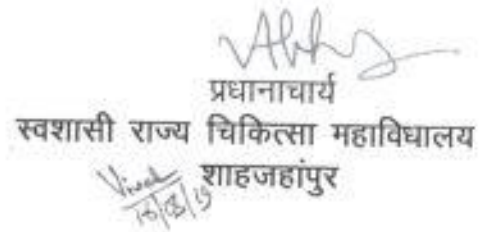 प्रधानाचार्य
स्वशासी राज्य चिकित्सा महाविधालय
शाहजहांपुर